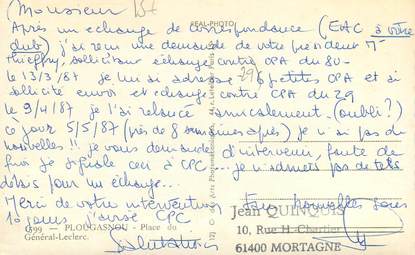 Monsieur
Après un échange de correspondance (EAC à votre
club) j'ai reçu une demande de votre président Mr
Thieffry, sollicitant échange contre CPA du 80 -
le 13/3/87 je lui ai adressé 6 petites CPA et ai
sollicité envoi et échange contre CPA du 29
le 9/4/87 je l'ai relancé amicalement. (oubli?)
Ce jour 5/5/87 (près de 8 semaines après) je n'ai pas de
nouvelles!! je vous demande d'intervenir, faute de
quoi je signale ceci à CPC... je n'admets pas de tels
délais pour un échange...
Merci de votre intervention. Sans nouvelles sous
10 jours j'avise CPC
Salutations
REAL-PHOTO
G99 - PLOUGASNOU - Place du
Général-Leclerc.
Jean QUINQUIS
10, Rue H- Chartier
61400 MORTAGNE